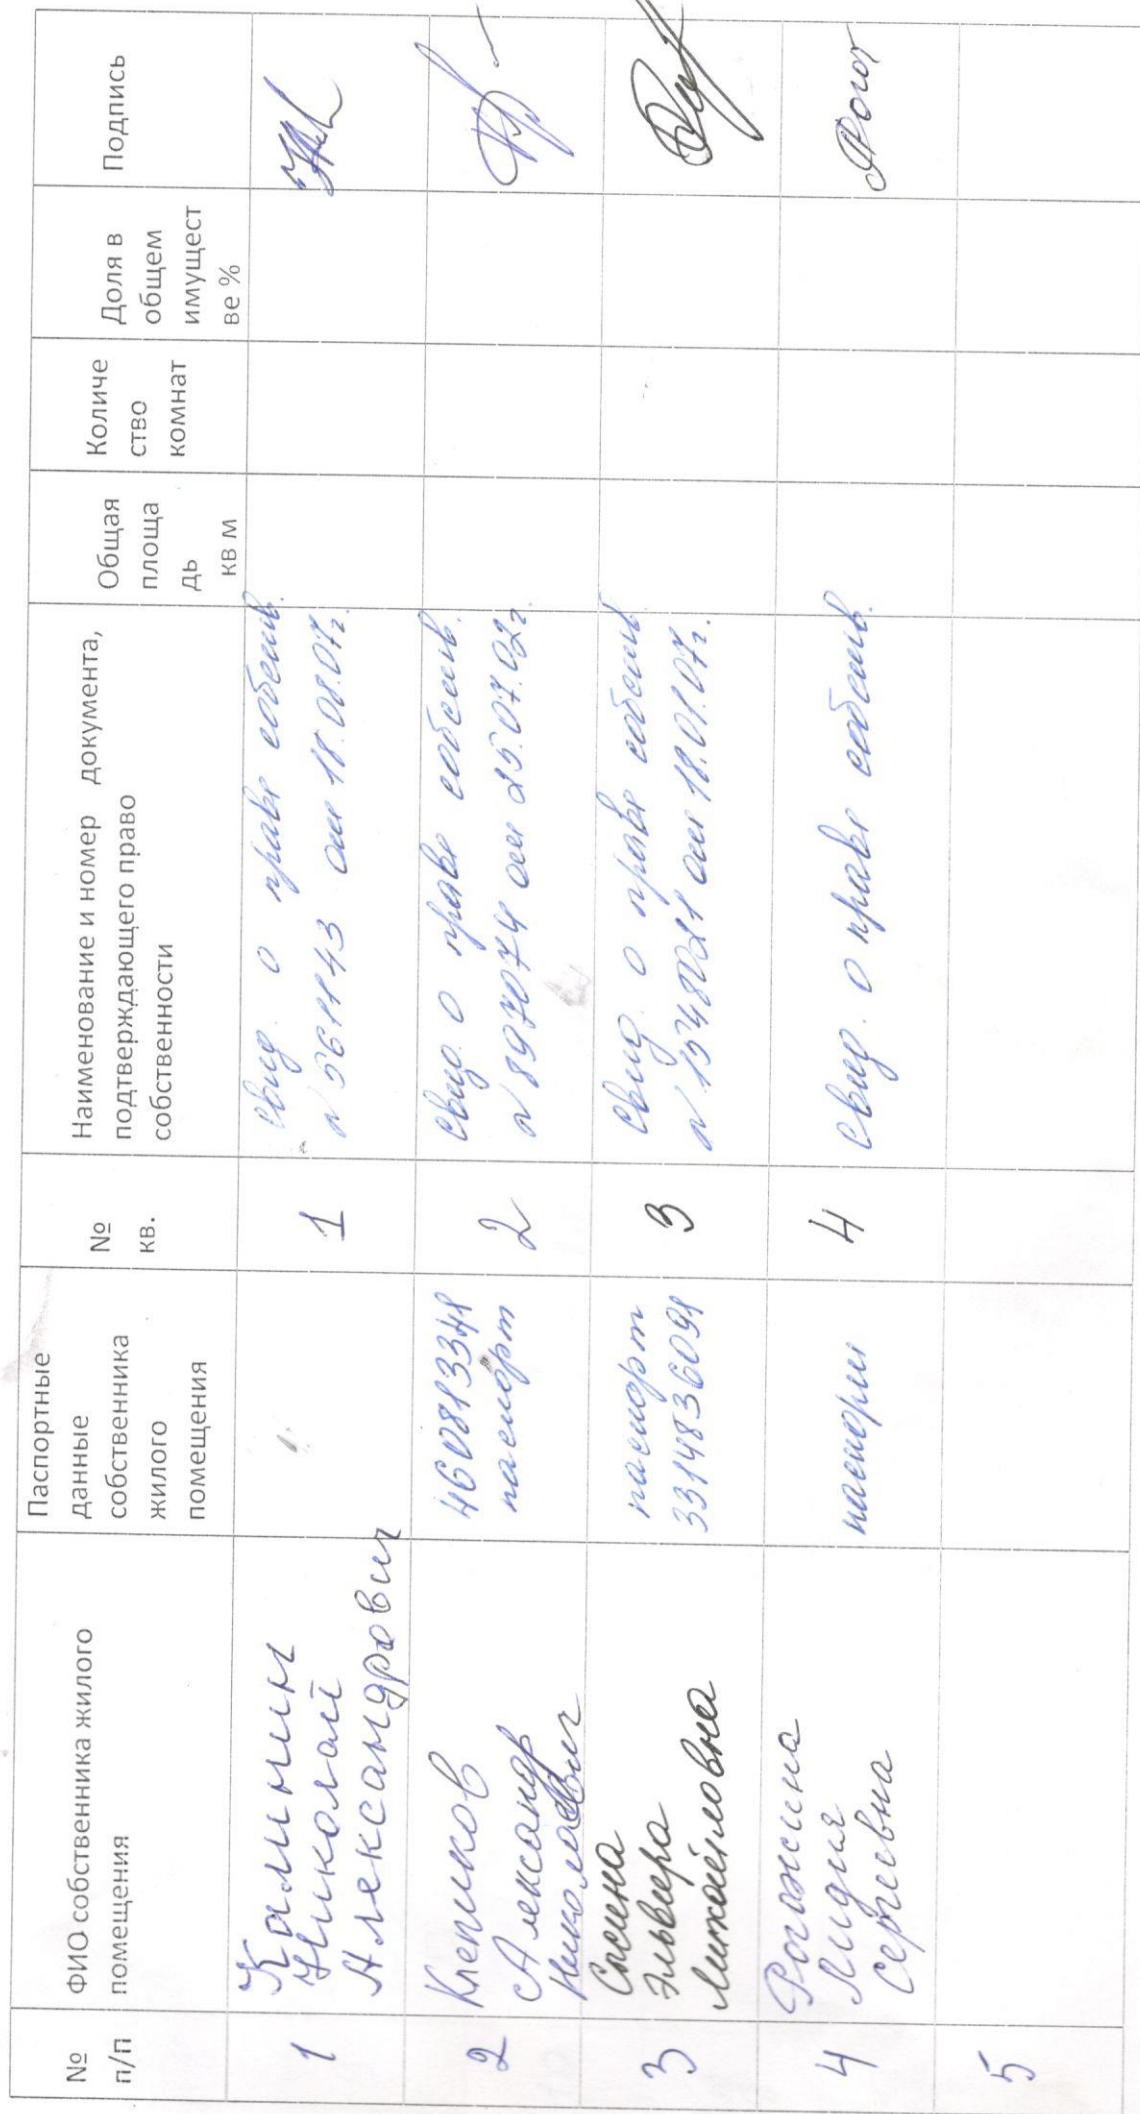 №
п/п
ФИО собственника жилого
помещения
Паспортные
данные
собственника
жилого
помещения
№
кв.
Наименование и номер документа,
подтверждающего право
собственности
Общая
площа
дь
кв м
Количе
ство
комнат
Доля в
общем
имущест
ве %
Подпись
1
Калинин
Николай
Александрович
1
свид. о праве собств.
№ 5611143 от 18.08.07г.
2
Клепиков
Александр
Николаевич
4608133348
паспорт
2
свид. о праве собств.
№ 897074 от 25.07.02г.
3
Сосина
Эльвира
Михайловна
паспорт
3314836091
3
свид. о праве собств
№ от 18.01.07г.
4
Рогожина
Лидия
Сергеевна
паспорт
4
свид. о праве собств.
5